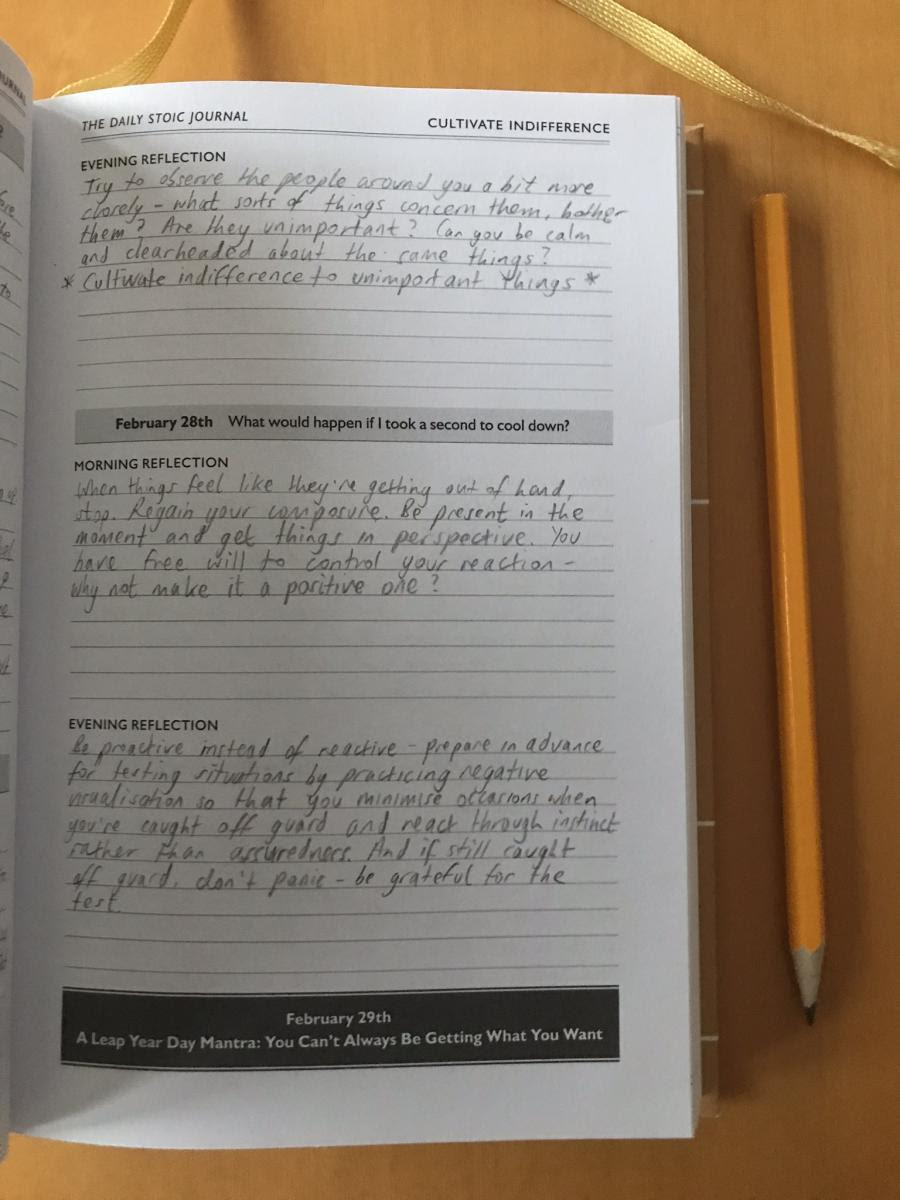 THE DAILY STOIC JOURNAL
CULTIVATE INDIFFERENCE
EVENING REFLECTION
Try to observe the people around you a bit more
closely – what sorts of things concern them, bother
them? Are they unimportant? Can you be calm
and clearheaded about the same things?
* Cultivate indifference to unimportant things *
February 28th What would happen if I took a second to cool down?
MORNING REFLECTION
When things feel like they're getting out of hand,
stop. Regain your composure. Be present in the
moment and get things in perspective. You
have free will to control your reaction –
why not make it a positive one?
EVENING REFLECTION
Be proactive instead of reactive – prepare in advance
for testing situations by practicing negative
visualisation so that you minimise occasions when
you're caught off guard and react through instinct
rather than assuredness. And if still caught
off guard, don't panic – be grateful for the
test.
February 29th
A Leap Year Day Mantra: You Can't Always Be Getting What You Want